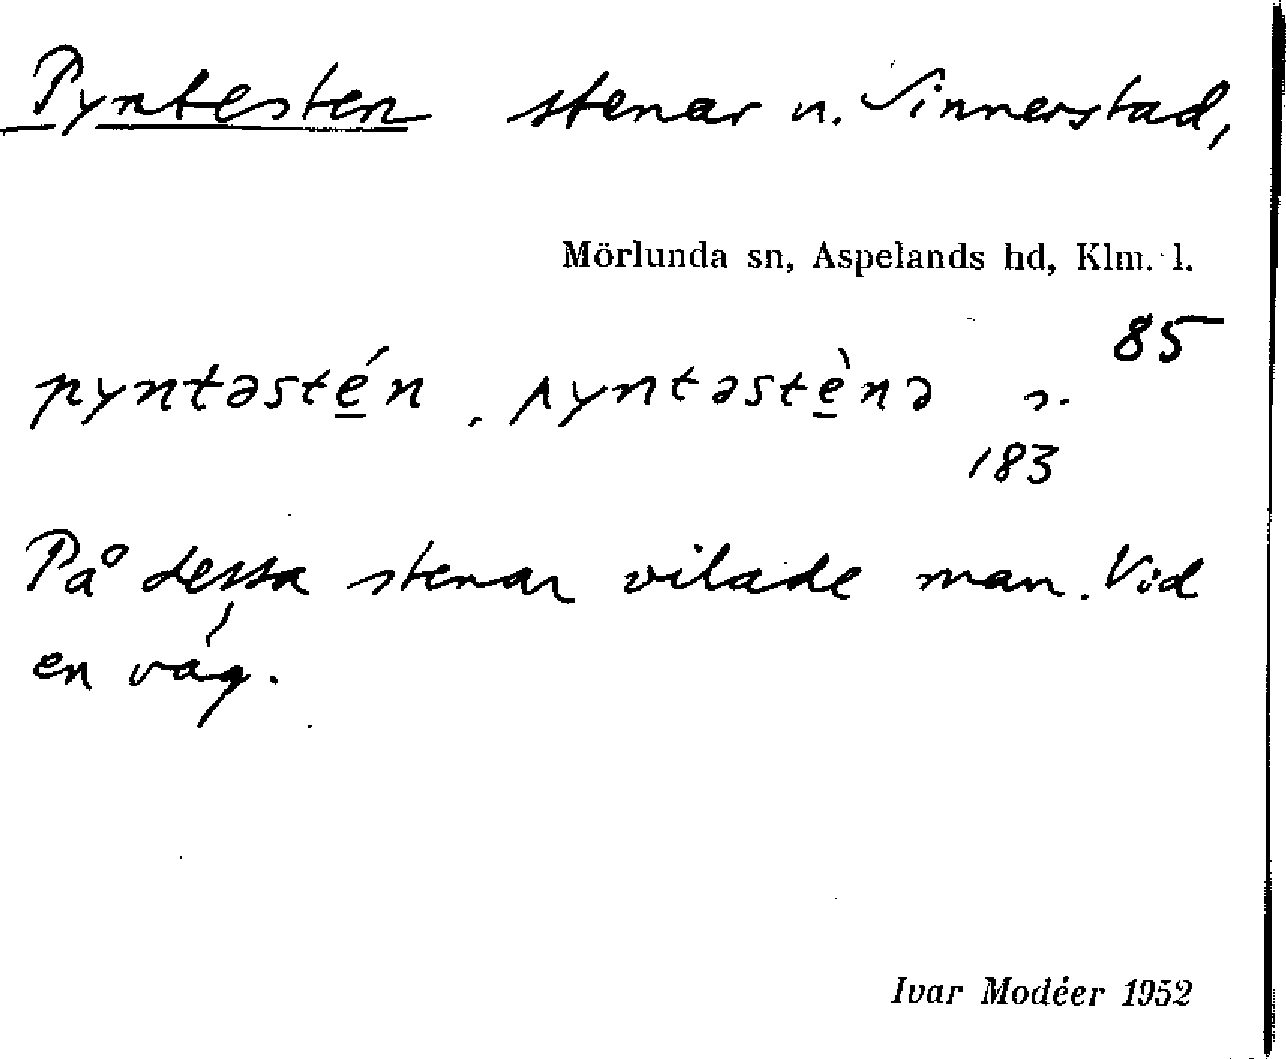 Pyntesten stenar n. Sinnerstad,
Mörlunda sn, Aspelands hd, Klm. l.
85
pyntəsté̠n, pyntəstè̠nə
183
På dessa stenar vilade man. Vid
en väg.
Ivar Modéer 1952